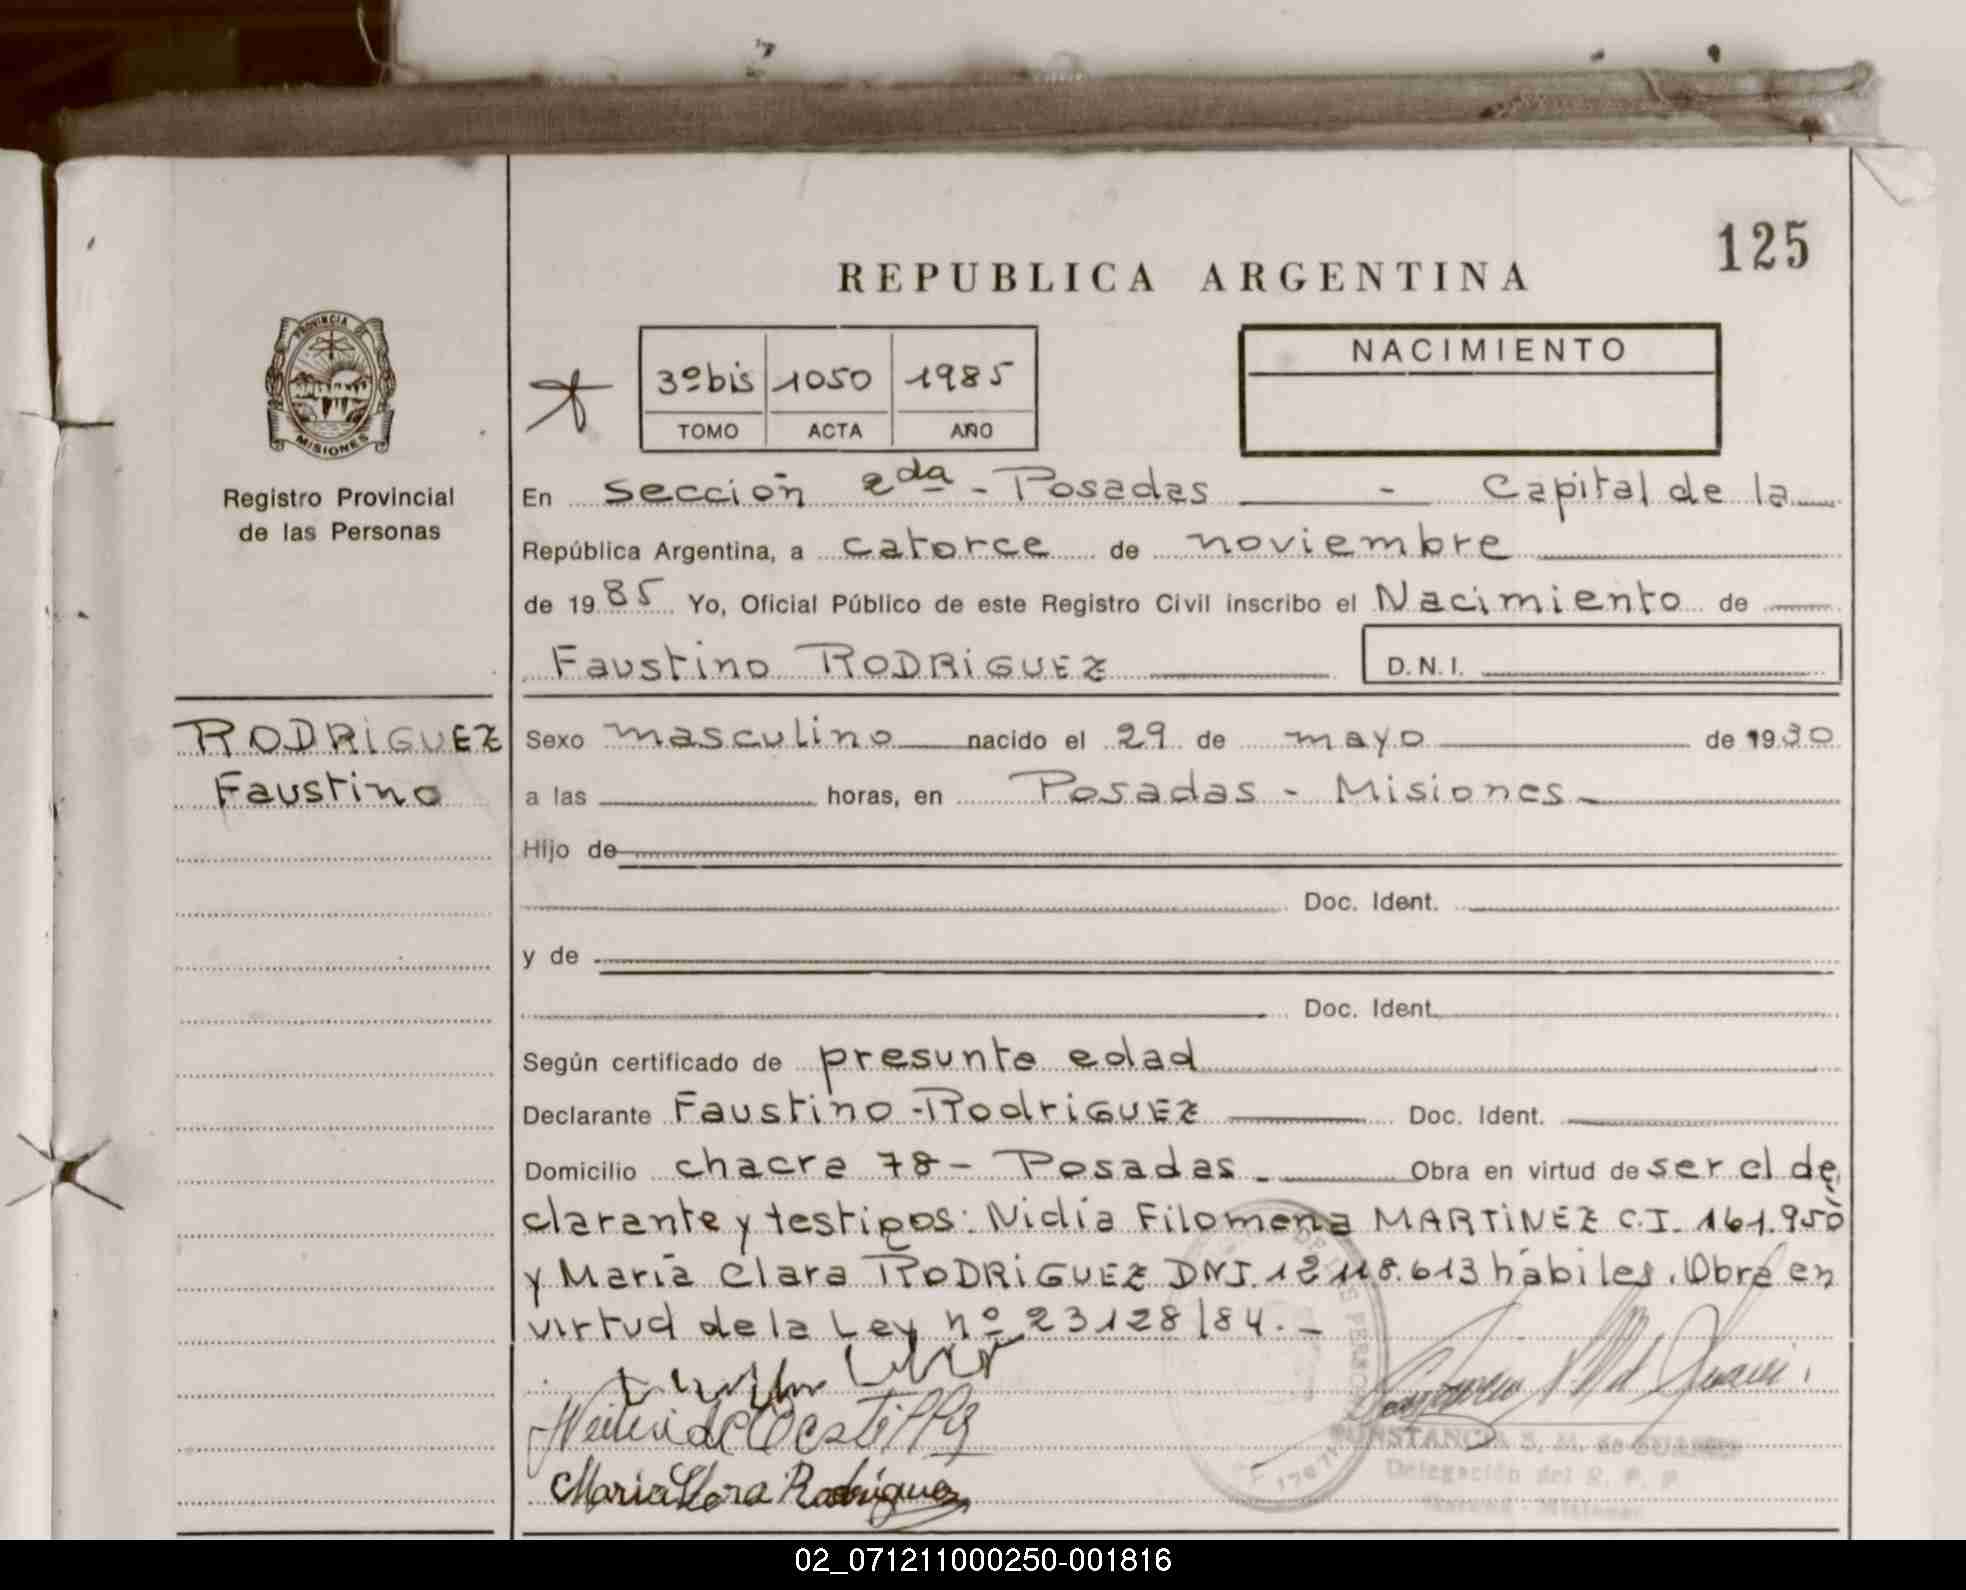 125
REPUBLICA ARGENTINA
PROVINCIA DE
MISIONES
Registro Provincial
de las Personas
3º bis 1050 1985
TOMO ACTA AÑO
NACIMIENTO
En sección 2da - Posadas - Capital de la
República Argentina, a catorce de noviembre
de 1985 Yo, Oficial Público de este Registro Civil inscribo el Nacimiento de
Faustino RODRIGUEZ D.N.I.
RODRIGUEZ
Faustino
Sexo masculino nacido el 29 de mayo de 1930
a las horas, en Posadas - Misiones
Hijo de
Doc. Ident.
y de
Doc. Ident.
Según certificado de presunta edad
Declarante Faustino Rodriguez Doc. Ident.
Domicilio chacra 78 - Posadas. Obra en virtud de ser el de
clarante y testigos: Nidia Filomena MARTINEZ C.I. 161.950
y María Clara RODRIGUEZ DNI. 12.118.613 hábiles. Obra en
virtud de la Ley nº 23128/84. -
Maria Clara Rodriguez
CONSTANCIA S. M. de
Delegación del R. P. P.
Misiones
02_071211000250-001816